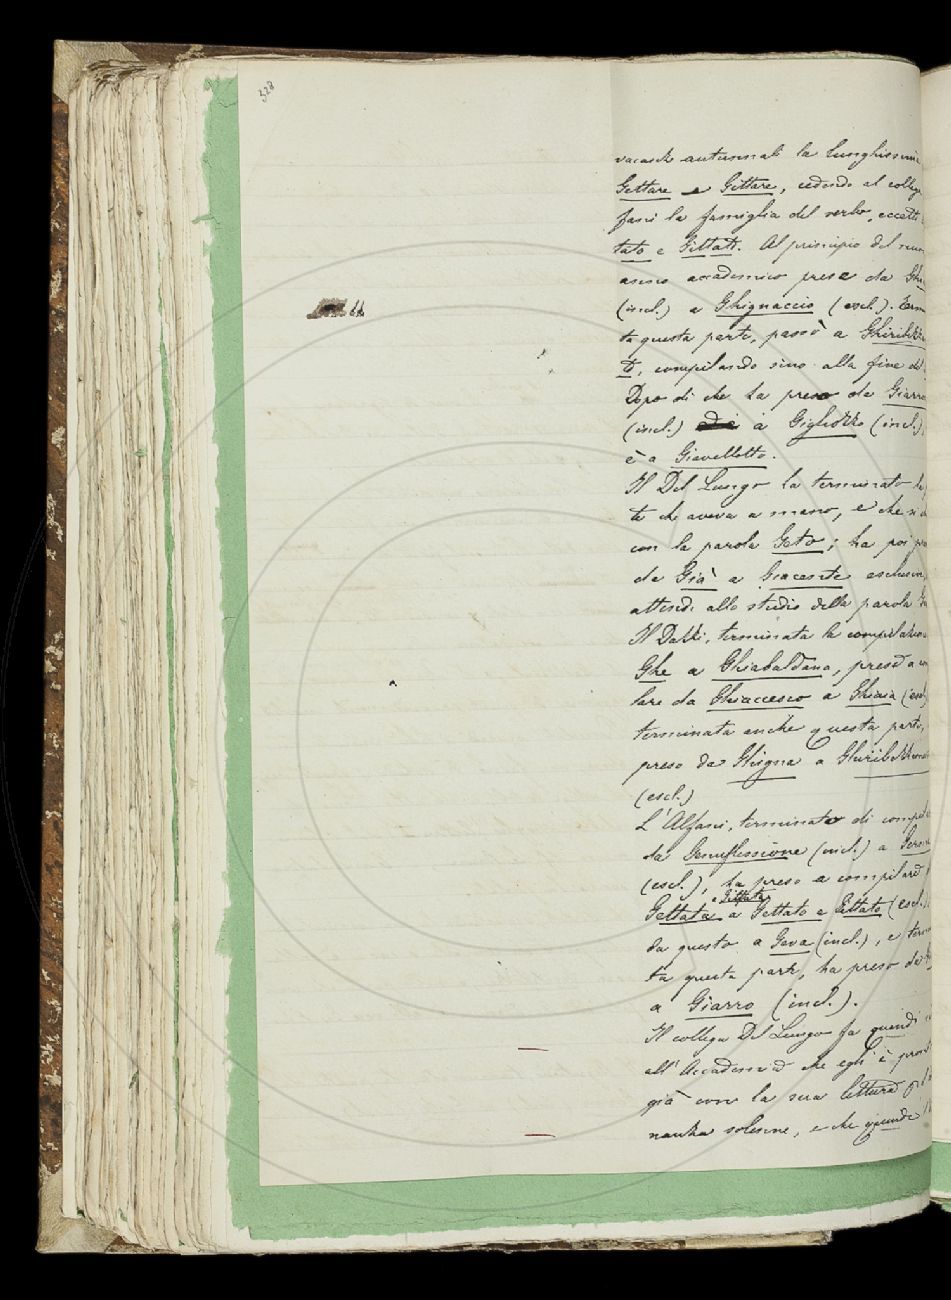 328
vacanze autunnali la lunghissima
Gettare e Gittare, cedendo al collega
fani la famiglia del verbo, eccett
tato e Gittato. Al principio del nuov
anno accademico prese da Ghi
(incl.) a Ghignaccio (escl.). Termi
ta questa parte, passò a Ghiribizza
to, compilando sino alla fine del
Dopo di che ha preso da Giarro
(incl.) a Gigliozzo (incl.)
è a Giavellotto.
Il Del Lungo ha terminato la
te che aveva a mano, e che si
con la parola Geto; ha poi
da Già a Giacente
attende allo studio della parola
Il Dazzi, terminata la compilazion
Ghe a Ghiabaldana, prese a
lare da Ghiaccesco a Ghiaia (escl
terminata anche questa parte,
prese da Ghigna a Ghiribizz
(escl.)
L'Alfani, terminato di compil
da Genuflessione (incl.) a
(escl.), ha preso a compilare
e Gittata
Gettata a Gettato e Gittato (escl.)
da questo a Geva (incl.), e term
ta questa parte, ha preso da
a Giarro (incl.).
Il collega Del Lungo fa quindi
all'Accademia che egli è pront
già con la sua lettura p
nanza solenne, e che quindi